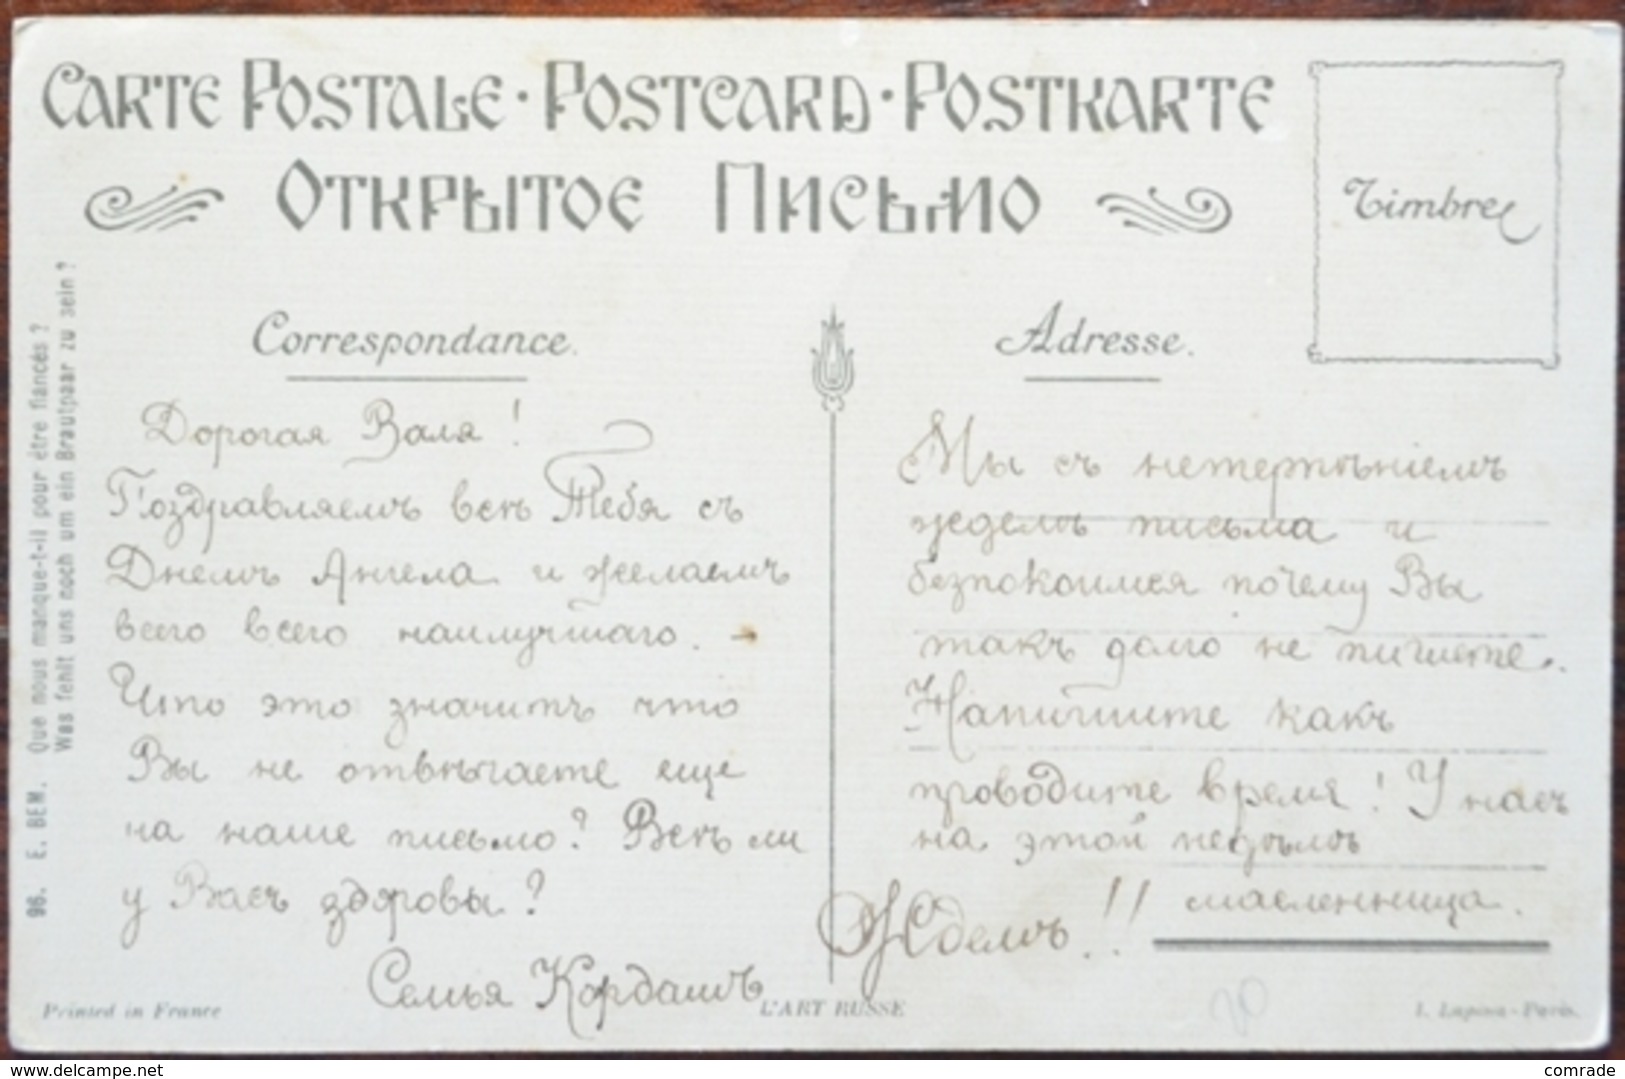 CARTE POSTALE · POSTCARD · POSTKARTE
ОТКРЫТОЕ ПИСЬМО
Timbre
Correspondance.
Дорогая Валя!
Поздравляемъ всѣ Тебя съ
Днемъ Ангела и желаемъ
всего всего наилучшаго.
Что это значитъ что
Вы не отвѣчаете еще
на наше письмо? Всѣ ли
у Васъ здоровы?
Семья Кордашъ
Adresse.
Мы съ нетерпѣніемъ
ждемъ письма и
безпокоимся почему Вы
такъ долго не пишете.
Напишите какъ
проводите время! У насъ
на этой недѣлѣ
масленница.
Ждемъ!!
96. E. BEM. Que nous manque-t-il pour être fiancés?
Was fehlt uns noch um ein Brautpaar zu sein?
Printed in France
L'ART RUSSE
I. Lapina - Paris.
20
delcampe.net
comrade